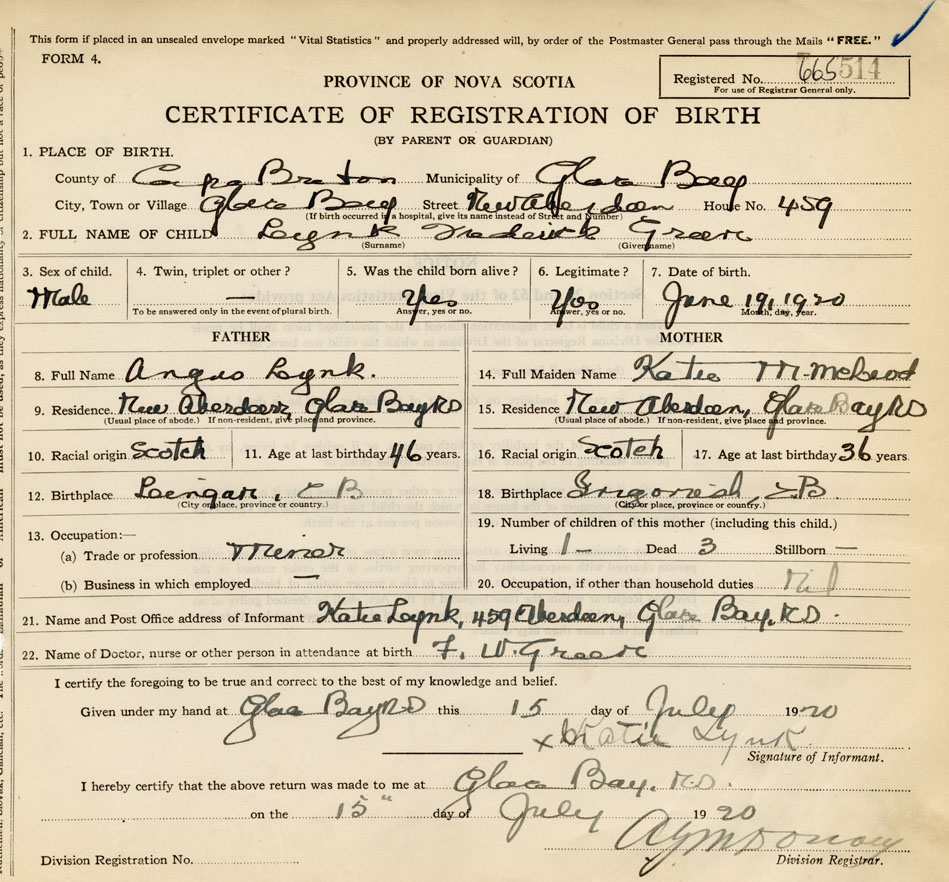 This form if placed in an unsealed envelope marked "Vital Statistics" and properly addressed will, by order of the Postmaster General pass through the Mails "FREE."
FORM 4.
Registered No. 665514
For use of Registrar General only.
PROVINCE OF NOVA SCOTIA
CERTIFICATE OF REGISTRATION OF BIRTH
(BY PARENT OR GUARDIAN)
1. PLACE OF BIRTH.
County of Cape Breton Municipality of Glace Bay
City, Town or Village Glace Bay Street New Aberdeen House No. 459
(If birth occurred in a hospital, give its name instead of Street and Number)
2. FULL NAME OF CHILD Lynk Frederick Green
(Surname) (Given name)
3. Sex of child. 4. Twin, triplet or other? 5. Was the child born alive? 6. Legitimate? 7. Date of birth.
Male — Yes Yes June 19, 1920
To be answered only in the event of plural birth. Answer, yes or no. Answer, yes or no. Month, day, year.
FATHER
8. Full Name Angus Lynk.
9. Residence. New Aberdeen, Glace Bay RD
(Usual place of abode.) If non-resident, give place and province.
10. Racial origin Scotch 11. Age at last birthday 46 years.
12. Birthplace Lingan, C B
(City or place, province or country.)
13. Occupation:—
(a) Trade or profession Miner
(b) Business in which employed —
MOTHER
14. Full Maiden Name Katie M. McLeod
15. Residence New Aberdeen, Glace Bay RD
(Usual place of abode.) If non-resident, give place and province.
16. Racial origin Scotch 17. Age at last birthday 36 years.
18. Birthplace C B.
(City or place, province or country.)
19. Number of children of this mother (including this child.)
Living 1 — Dead 3 Stillborn —
20. Occupation, if other than household duties Nil
21. Name and Post Office address of Informant Katie Lynk, 459 Aberdeen, Glace Bay. RD.
22. Name of Doctor, nurse or other person in attendance at birth F. W. Green
I certify the foregoing to be true and correct to the best of my knowledge and belief.
Given under my hand at Glace Bay RD this 15 day of July 1920
x Katie Lynk.
Signature of Informant.
I hereby certify that the above return was made to me at Glace Bay. R.D.
on the 15" day of July 1920
Division Registration No.
Division Registrar.